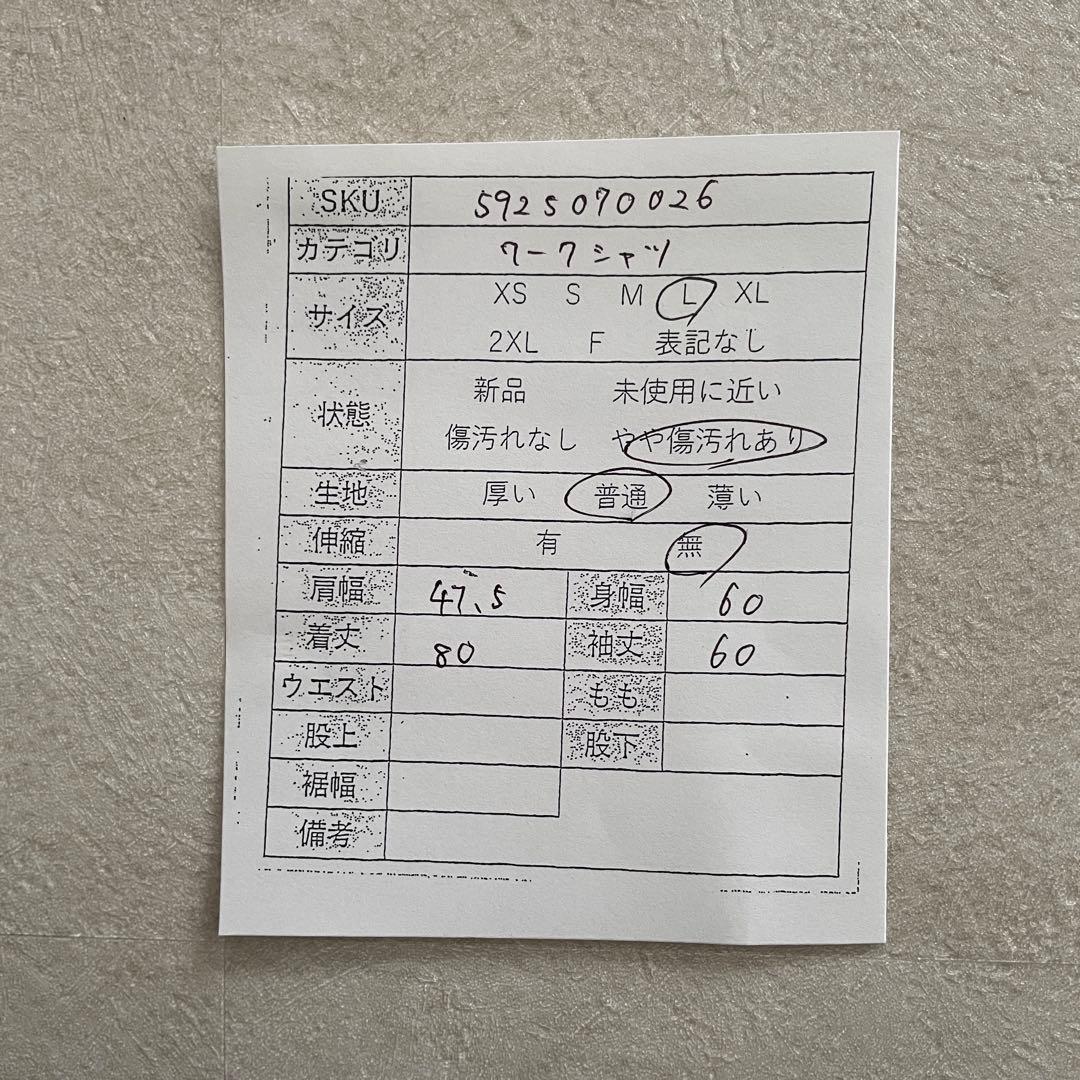 SKU 5925070026
カテゴリ ワークシャツ
サイズ XS S M L XL
2XL F 表記なし
状態 新品 未使用に近い
傷汚れなし やや傷汚れあり
生地 厚い 普通 薄い
伸縮 有 無
肩幅 47.5 身幅 60
着丈 80 袖丈 60
ウエスト もも
股上 股下
裾幅
備考